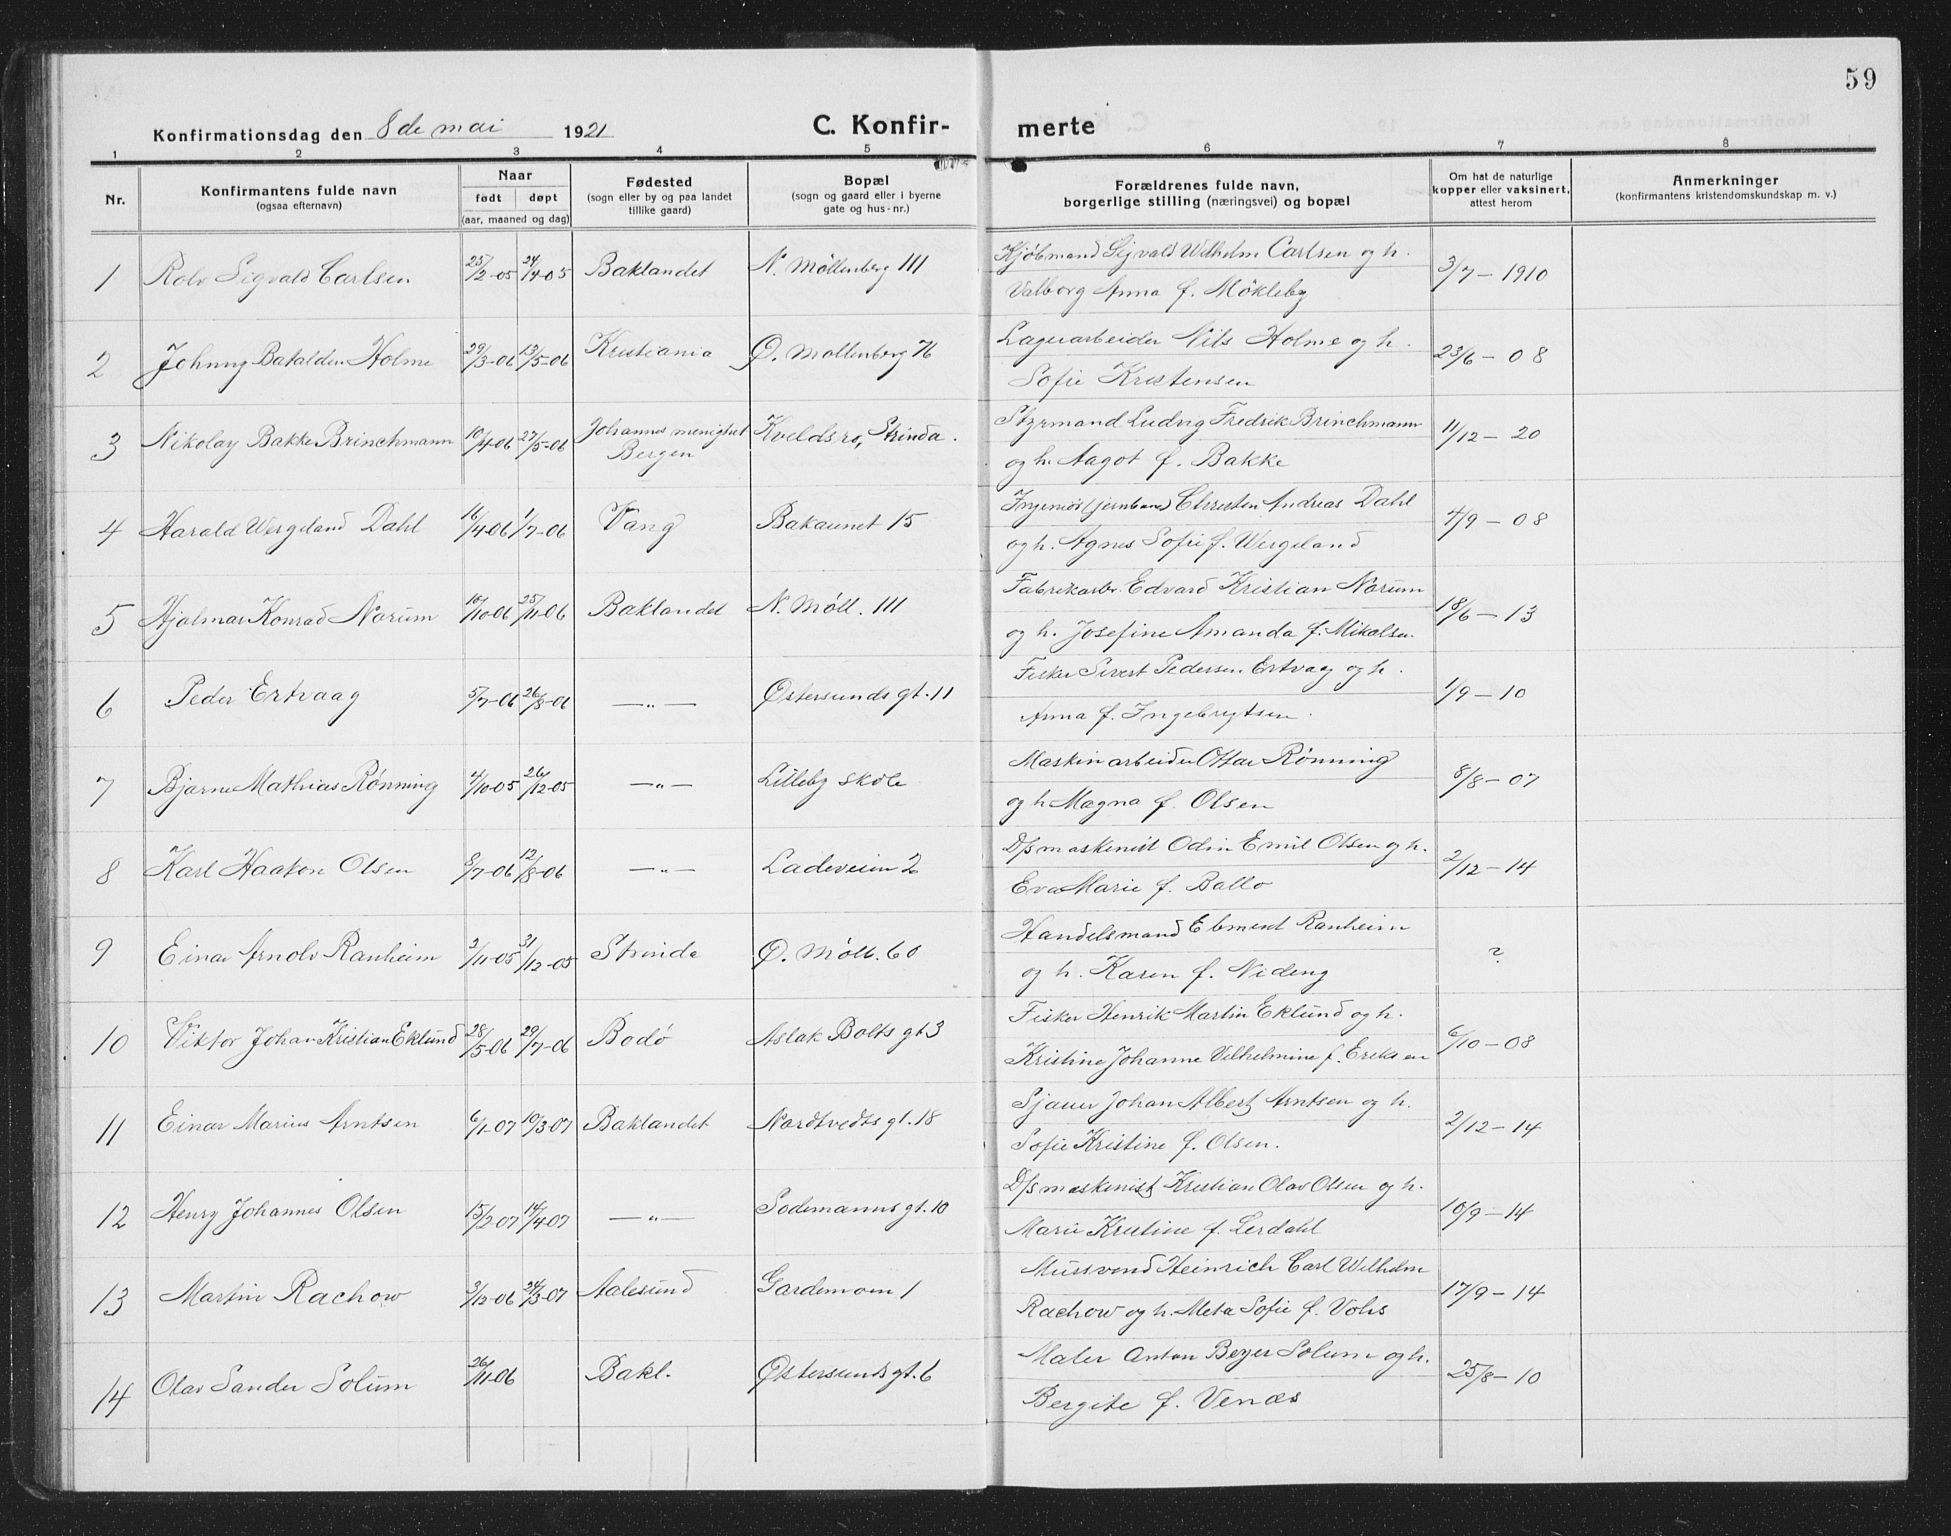 59
Konfirmationsdag den 8de mai 1921
C. Konfirmerte
1 2 3 4 5 6 7 8
Nr.
Konfirmantens fulde navn
(ogsaa efternavn)
Naar
født døpt
(aar, maaned og dag)
Fødested
(sogn eller by og paa landet
tillike gaard)
Bopæl
(sogn og gaard eller i byerne
gate og hus-nr.)
Forældrenes fulde navn,
borgerlige stilling (næringsvei) og bopæl
Om hat de naturlige
kopper eller vaksinert,
attest herom
Anmerkninger
(konfirmantens kristendomskundskap m. v.)
1 Rolv Sigvald Carlsen 25/2-05 24/4-05 Baklandet N. Møllenberg 111 Kjøbmand Sigvald Wilhelm Carlsen og h. 3/7-1910
Valborg Anna f. Møkleby
2 Johnny Bataldén Holme 29/3-06 13/5-06 Kristiania Ø. Møllenberg 76 Lagerarbeider Nils Holme og h. 23/6-08
Sofie Kristensen
3 Nikolay Bakke Brinchmann 10/4-06 27/5-06 Johannes menighet Kveldsro, Strinda. Styrmand Ludvig Fredrik Brinchmann 11/12-20
Bergen og h. Aagot f. Bakke
4 Harald Wergeland Dahl 16/4-06 1/7-06 Vang Bakaunet 15 Ingeniør (jernbane) Christen Andreas Dahl 4/9-08
og h. Agnes Sofie f. Wergeland
5 Hjalmar Konrad Norum 10/10-06 25/11-06 Baklandet N. Møll. 111 Fabrikarbr. Edvard Kristian Norum 18/6-13
og h. Josefine Amanda f. Mikalsen
6 Peder Ertvaag 5/7-06 26/8-06 —„— Østersunds gt. 11 Fisker Sivert Pedersen Ertvaag og h. 1/9-10
Anna f. Ingebrigtsen.
7 Bjarne Mathias Rønning 4/10-05 26/12-05 —„— Lilleby skole Maskinarbeider Ottar Rønning 8/8-07
og h Magna f. Olsen
8 Karl Haakon Olsen 8/7-06 12/8-06 —„— Ladeveien 2 D/s maskinist Odin Emil Olsen og h. 2/12-14
Eva Marie f. Ballo
9 Einar Arnolv Ranheim 3/11-05 31/12-05 Strinda Ø. Møll. 60 Handelsmand Ebmert Ranheim ?
og h. Karen f. Nideng
10 Viktor Johan Kristian Eklund 28/5-06 29/7-06 Bodø Aslak Bolts gt 3 Fisker Henrik Martin Eklund og h. 6/10-08
Kristine Johanne Vilhelmine f. Eriksen
11 Einar Marius Arntsen 6/1-07 10/3-07 Baklandet Nordtvedts gt. 18 Sjauer Johan Albert Arntsen og h. 2/12-14
Sofie Kristine f. Olsen.
12 Henry Johannes Olsen 15/2-07 14/4-07 —„— Sodemanns gt. 10 D/s maskinist Kristian Olav Olsen og h. 10/9-14
Marie Kristine f. Lerdahl
13 Martin Rachow 3/12-06 24/3-07 Aalesund Gardemoen 1 Mursvend Heinrich Carl Wilhelm 17/9-14
Rachow og h. Meta Sofie f. Vohs
14 Olav Sander Solum 26/11-06 Bakl. Østersunds gt. 6 Maler Anton Beyer Solum og h. 25/8-10
Bergite f. Venæs